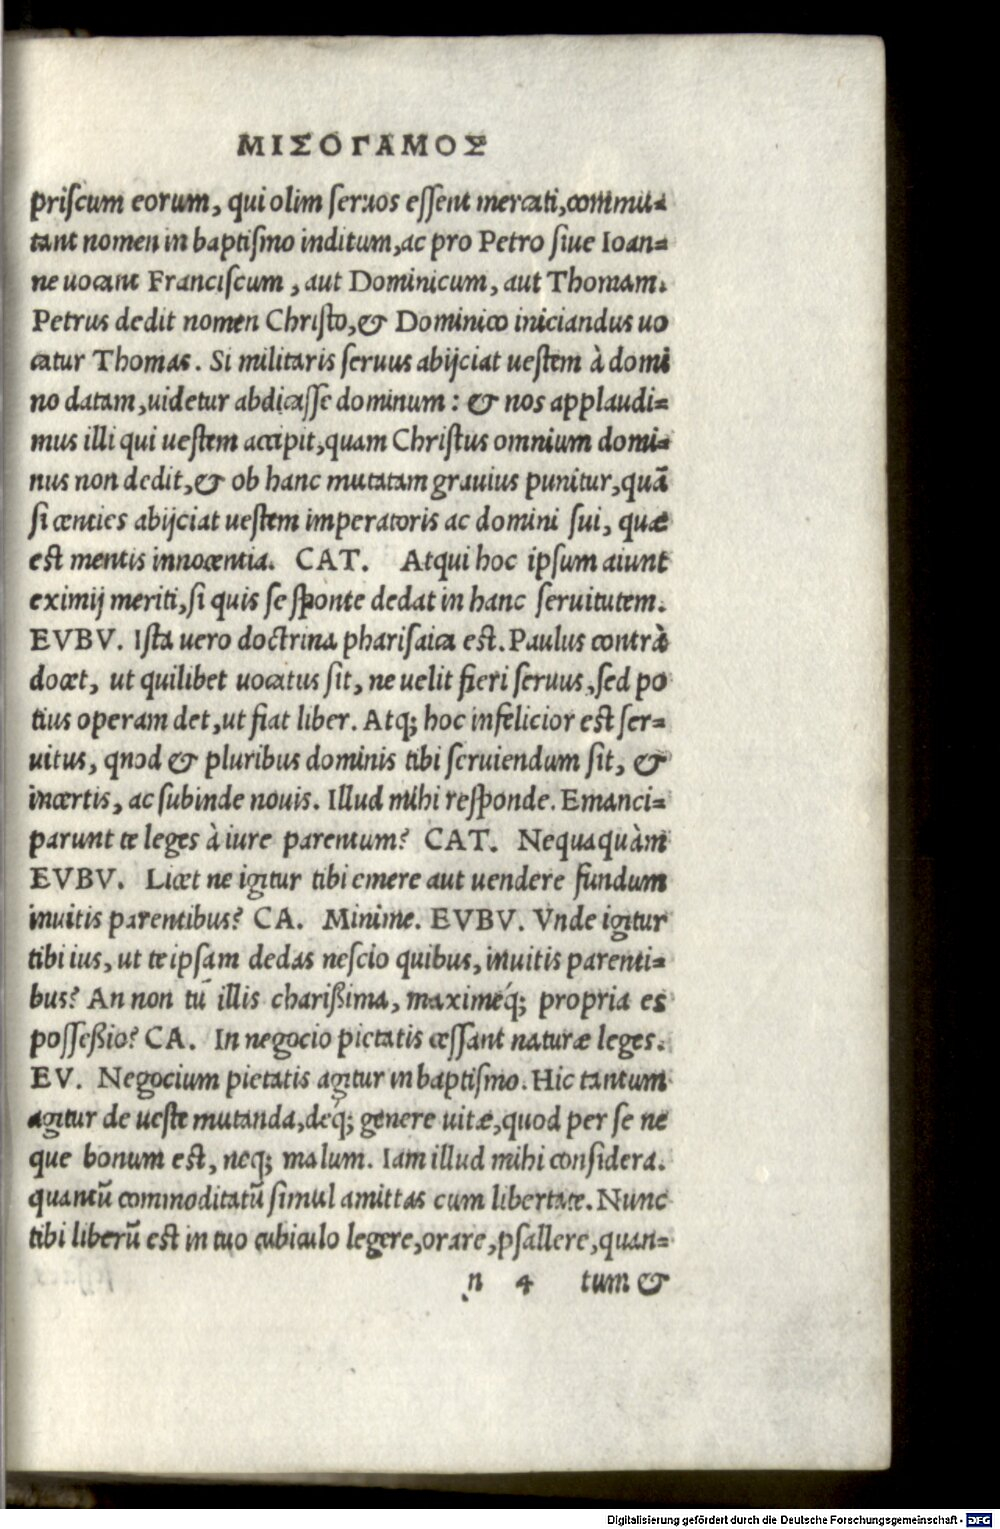 ΜΙΣΟΓΑΜΟΣ
priſcum eorum, qui olim ſeruos eſſent mercati, commu-
tant nomen in baptiſmo inditum, ac pro Petro ſiue Ioan-
ne uocant Franciſcum, aut Dominicum, aut Thomam.
Petrus dedit nomen Chriſto, & Dominico iniciandus uo
catur Thomas. Si militaris ſeruus abijciat ueſtem à domi
no datam, uidetur abdicaſſe dominum: & nos applaudi-
mus illi qui ueſtem accipit, quam Chriſtus omnium domi-
nus non dedit, & ob hanc mutatam grauius punitur, quā
ſi centies abijciat ueſtem imperatoris ac domini ſui, quæ
eſt mentis innocentia. CAT. Atqui hoc ipſum aiunt
eximij meriti, ſi quis ſe ſponte dedat in hanc ſeruitutem.
EVBV. Iſta uero doctrina phariſaica eſt. Paulus contrà
docet, ut quilibet uocatus ſit, ne uelit fieri ſeruus, ſed po
tius operam det, ut fiat liber. Atq; hoc infelicior eſt ſer-
uitus, qnod & pluribus dominis tibi ſeruiendum ſit, &
incertis, ac ſubinde nouis. Illud mihi reſponde. Emanci-
parunt te leges à iure parentum? CAT. Nequaquàm
EVBV. Licet ne igitur tibi emere aut uendere fundum
inuitis parentibus? CA. Minime. EVBV. Vnde igitur
tibi ius, ut teipſam dedas neſcio quibus, inuitis parenti-
bus? An non tu illis charißima, maximeq́; propria es
poſſeßio? CA. In negocio pietatis ceſſant naturæ leges.
EV. Negocium pietatis agitur in baptiſmo. Hic tantum
agitur de ueſte mutanda, deq́; genere uitæ, quod per ſe ne
que bonum eſt, neq; malum. Iam illud mihi conſidera.
quantū commoditatū ſimul amittas cum libertate. Nunc
tibi liberū eſt in tuo cubiculo legere, orare, pſallere, quan-
n 4 tum &
Digitalisierung gefördert durch die Deutsche Forschungsgemeinschaft - DFG